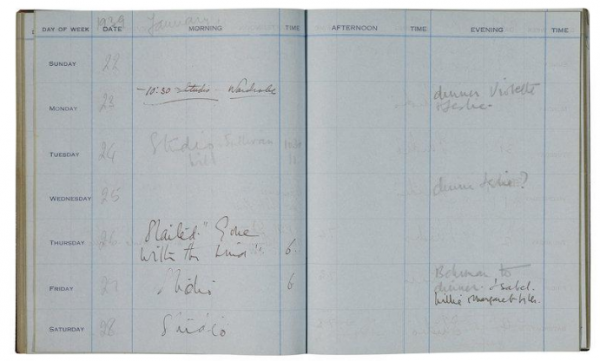 1939 January
DAY OF WEEK DATE MORNING TIME AFTERNOON TIME EVENING TIME
SUNDAY 22
MONDAY 23 10:30 studio - Wardrobe dinner
& Leslie.
TUESDAY 24 Studio
WEDNESDAY 25 dinner Leslie?
THURSDAY 26 Started "Gone
With the Wind". 6
FRIDAY 27 Studio 6 to
dinner. Isabel.
Margaret
SATURDAY 28 Studio